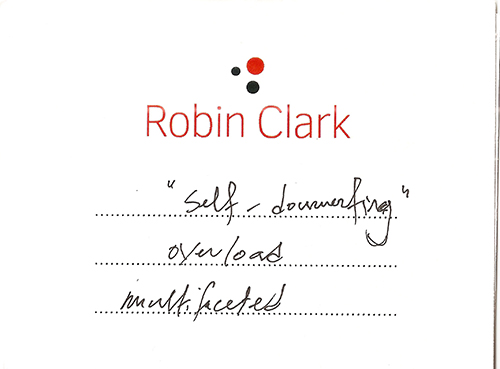 Robin Clark
"self-documenting"
overload
multifaceted